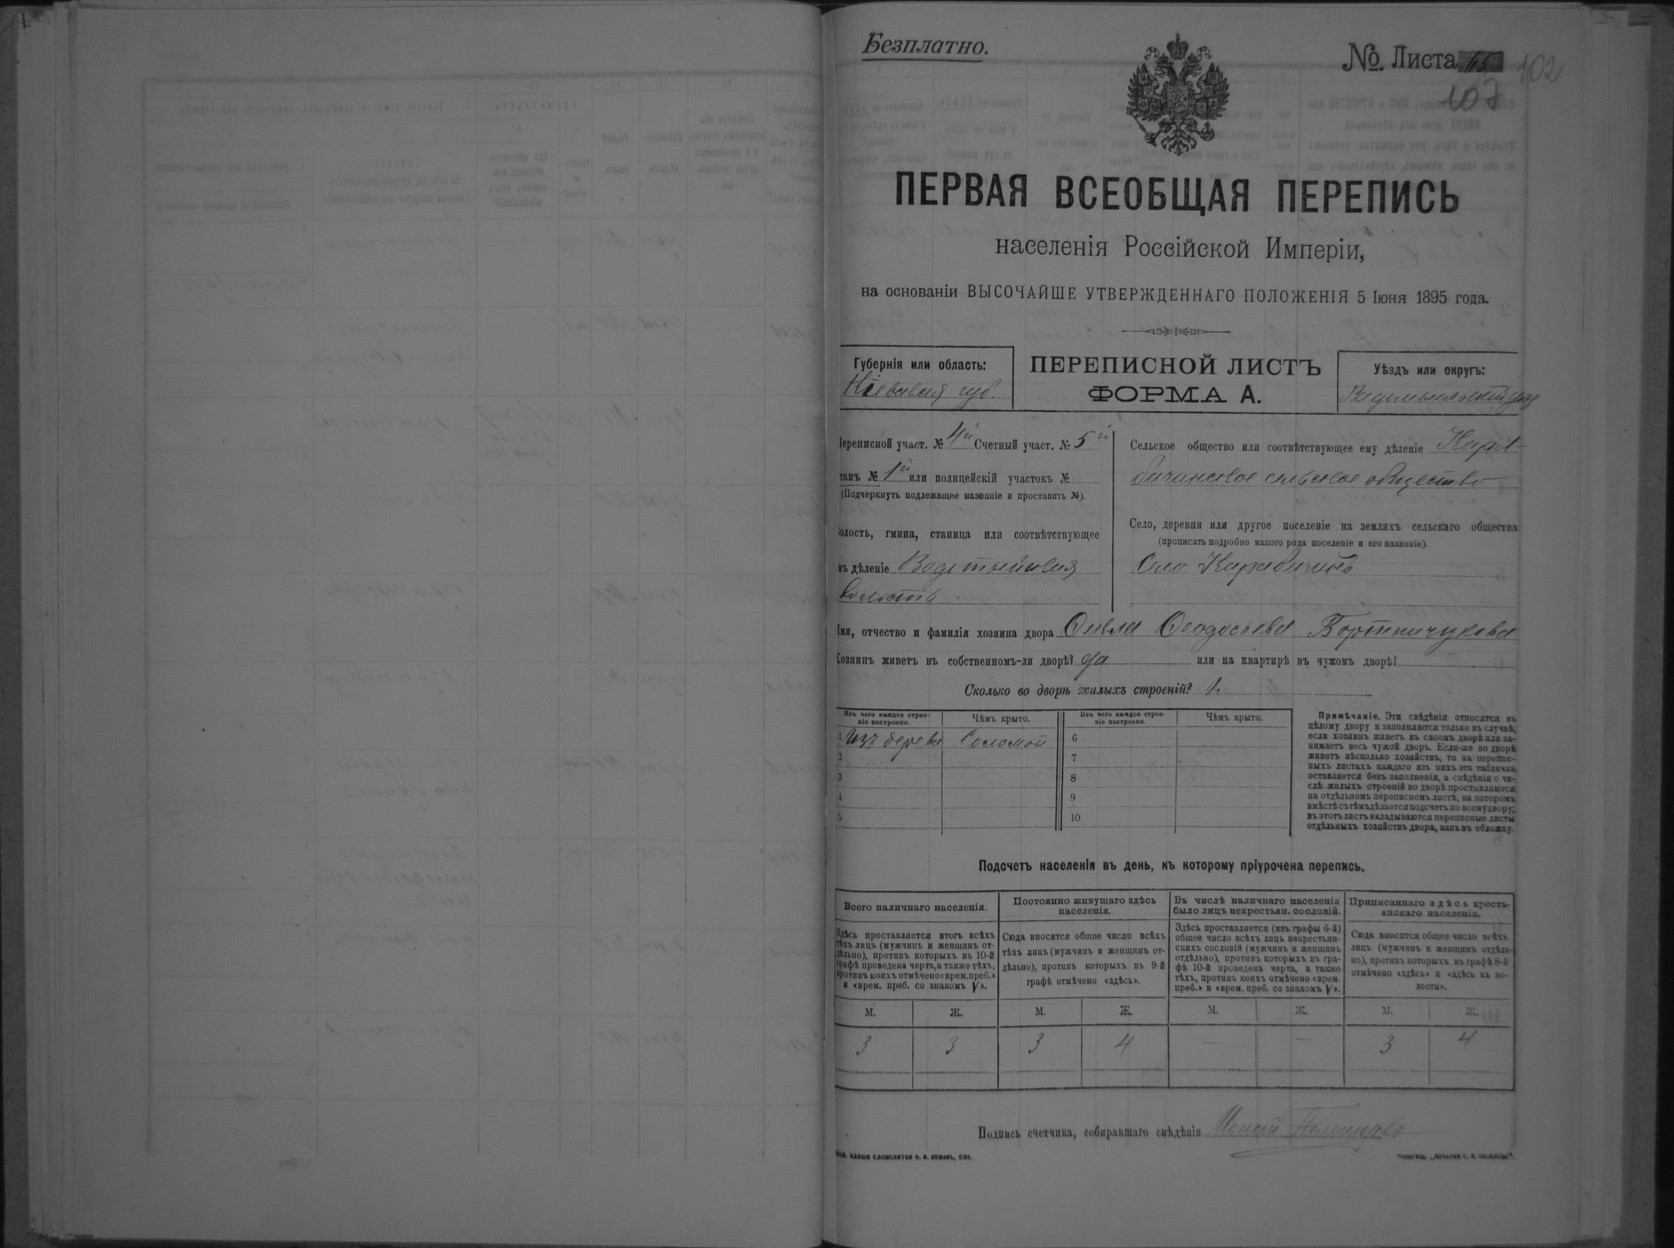 Безплатно.
№. Листа 65 102
107
ПЕРВАЯ ВСЕОБЩАЯ ПЕРЕПИСЬ
населенія Россійской Имперіи,
на основаніи ВЫСОЧАЙШЕ УТВЕРЖДЕННАГО ПОЛОЖЕНІЯ 5 Іюня 1895 года.
Губернія или область:
Кіевская губ.
ПЕРЕПИСНОЙ ЛИСТЪ
ФОРМА А.
Уѣздъ или округъ:
Переписной участ. № 4й Счетный участ. № 5й
танъ № 1й или полицейскій участокъ №
(Подчеркнуть подлежащее названіе и проставить №).
волость, гмина, станица или соотвѣтствующее
въ дѣленіе
волость.
Сельское общество или соотвѣтствующее ему дѣленіе Караб-
бичинское сельское общество
Село, деревня или другое поселеніе на земляхъ сельскаго общества
(прописать подробно какого рода поселеніе и его названіе).
Село Карабачинъ
Имя, отчество и фамилія хозяина двора Феодосьева Бортничукова
Хозяинъ живетъ въ собственномъ-ли дворѣ? да или на квартирѣ въ чужомъ дворѣ?
Сколько во дворѣ жилыхъ строеній? 1.
Изъ чего каждое строе-
ніе построено.
Чѣмъ крыто.
Изъ чего каждое строе-
ніе построено.
Чѣмъ крыто.
1 Изъ дерева Соломой 6
2 7
3 8
4 9
5 10
Примѣчаніе. Эти свѣдѣнія относятся къ
цѣлому двору и заполняются только въ случаѣ,
если хозяинъ живетъ въ своемъ дворѣ или за-
нимаетъ весь чужой дворъ. Если-же во дворѣ
живетъ нѣсколько хозяйствъ, то на перепис-
ныхъ листахъ каждаго изъ нихъ эта табличка
оставляется безъ заполненія, а свѣдѣнія о чи-
слѣ жилыхъ строеній во дворѣ проставляются
на отдѣльномъ переписномъ листѣ, на которомъ
вмѣстѣ съ тѣмъ дѣлается подсчетъ по всему двору;
въ этотъ листъ вкладываются переписные листы
отдѣльныхъ хозяйствъ двора, какъ въ обложку.
Подсчетъ населенія въ день, къ которому пріурочена перепись.
Всего наличнаго населенія.
Здѣсь проставляется итогъ всѣхъ
тѣхъ лицъ (мужчинъ и женщинъ от-
дѣльно), противъ которыхъ въ 10-й
графѣ проведена черта, а также тѣхъ,
противъ коихъ отмѣчено «врем. преб.»
и «врем. преб. со знакомъ V».
Постоянно живущаго здѣсь
населенія.
Сюда вносится общее число всѣхъ
тѣхъ лицъ (мужчинъ и женщинъ от-
дѣльно), противъ которыхъ въ 9-й
графѣ отмѣчено «здѣсь».
Въ числѣ наличнаго населенія
было лицъ некрестьян. сословій.
Здѣсь проставляется (изъ графы 6-й)
общее число всѣхъ лицъ некрестьян-
скихъ сословій (мужчинъ и женщинъ
отдѣльно), противъ которыхъ въ гра-
фѣ 10-й проведена черта, а также
тѣхъ, противъ коихъ отмѣчено «врем.
преб.» и «врем. преб. со знакомъ V».
Приписаннаго здѣсь кресть-
янскаго населенія.
Сюда вносится общее число всѣхъ
лицъ (мужчинъ и женщинъ отдѣль-
но), противъ которыхъ въ графѣ 8-й
отмѣчено «здѣсь» и «здѣсь къ во-
лости».
М. Ж. М. Ж. М. Ж. М. Ж.
3 3 3 4 — — 3 4
Подпись счетчика, собиравшаго свѣдѣнія Моисей